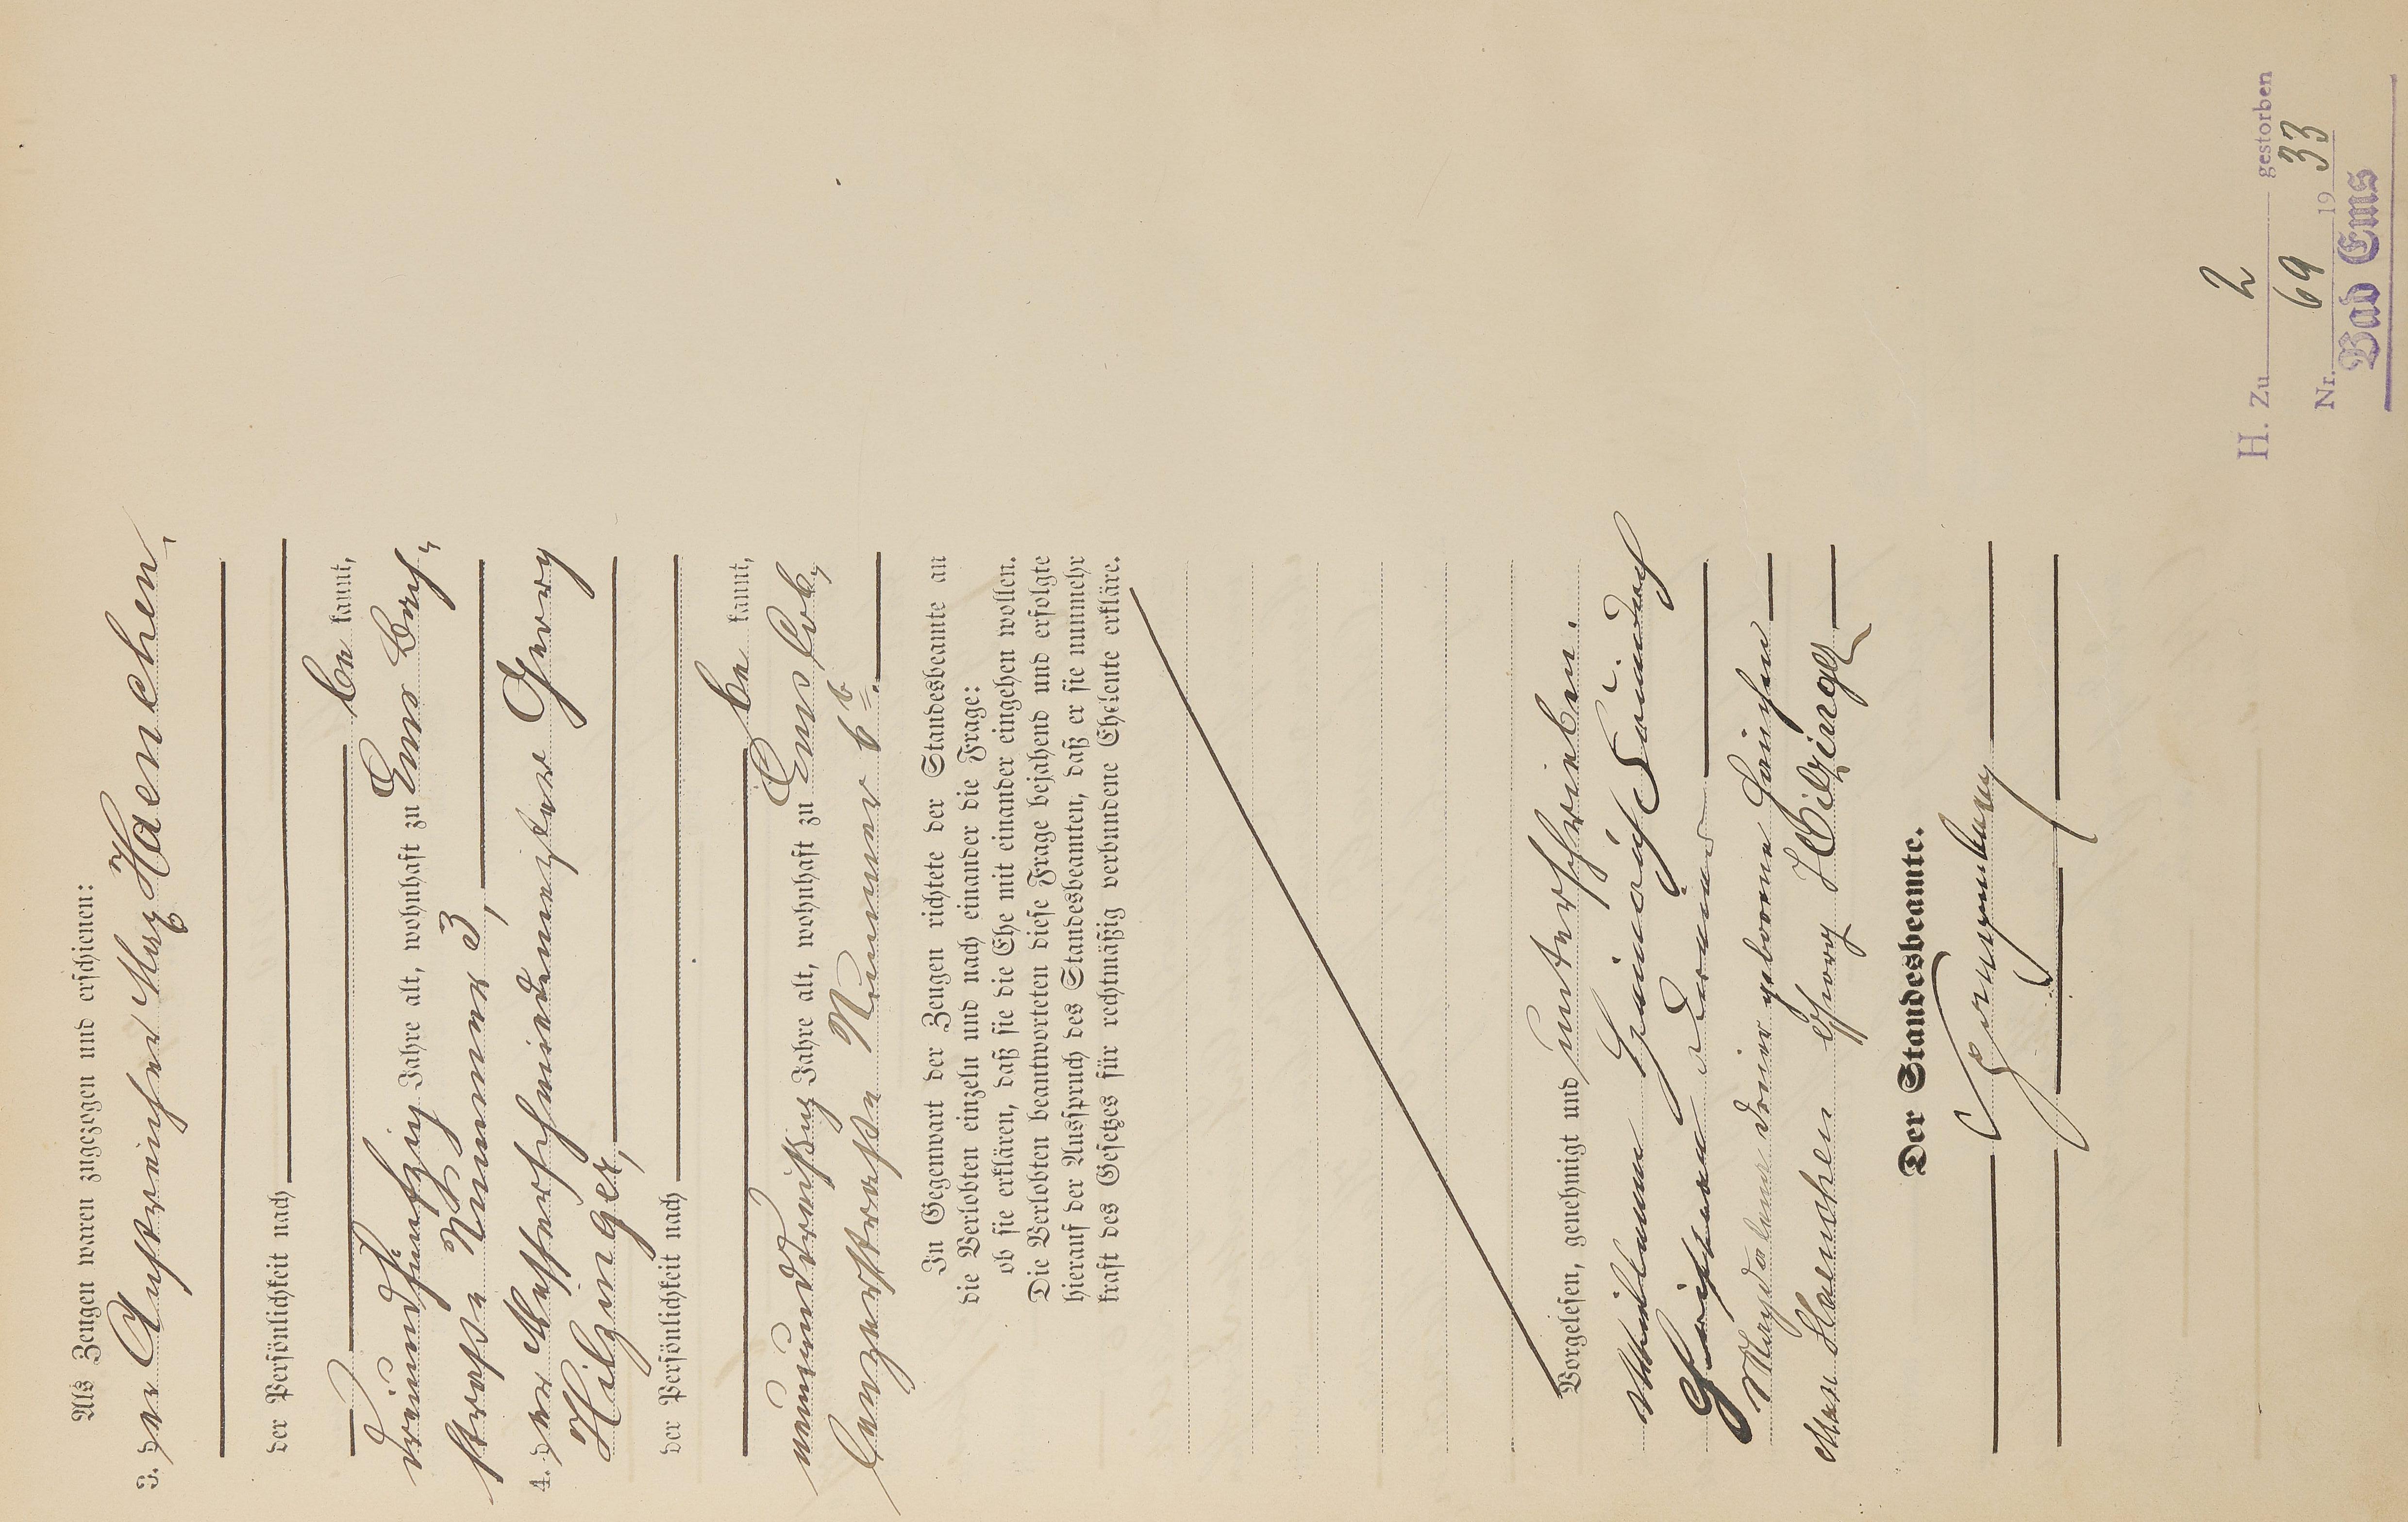 Als Zeugen waren zugezogen und erschienen:
3. der Anstreicher Max Haenchen,
der Persönlichkeit nach
be kannt,
dreiundfünfzig Jahre alt, wohnhaft zu Ems Bach-
straße Nummer 3,
4. der Messerschmiedemeister Georg
Hilzinger,
der Persönlichkeit nach
be kannt,
neununddreißig Jahre alt, wohnhaft zu Ems Cob-
lenzerstraße Nummer 6 b.
In Gegenwart der Zeugen richtete der Standesbeamte an
die Verlobten einzeln und nach einander die Frage:
ob sie erklären, daß sie die Ehe mit einander eingehen wollen.
Die Verlobten beantworteten diese Frage bejahend und erfolgte
hierauf der Ausspruch des Standesbeamten, daß er sie nunmehr
kraft des Gesetzes für rechtmäßig verbundene Eheleute erkläre.
Vorgelesen, genehmigt und unterschrieben.
Heinrich
Magdalena geborene
Max Haenchen Georg Hilzinger
Der Standesbeamte.
H. Zu 2 gestorben
Nr. 69 19 33
Bad Ems